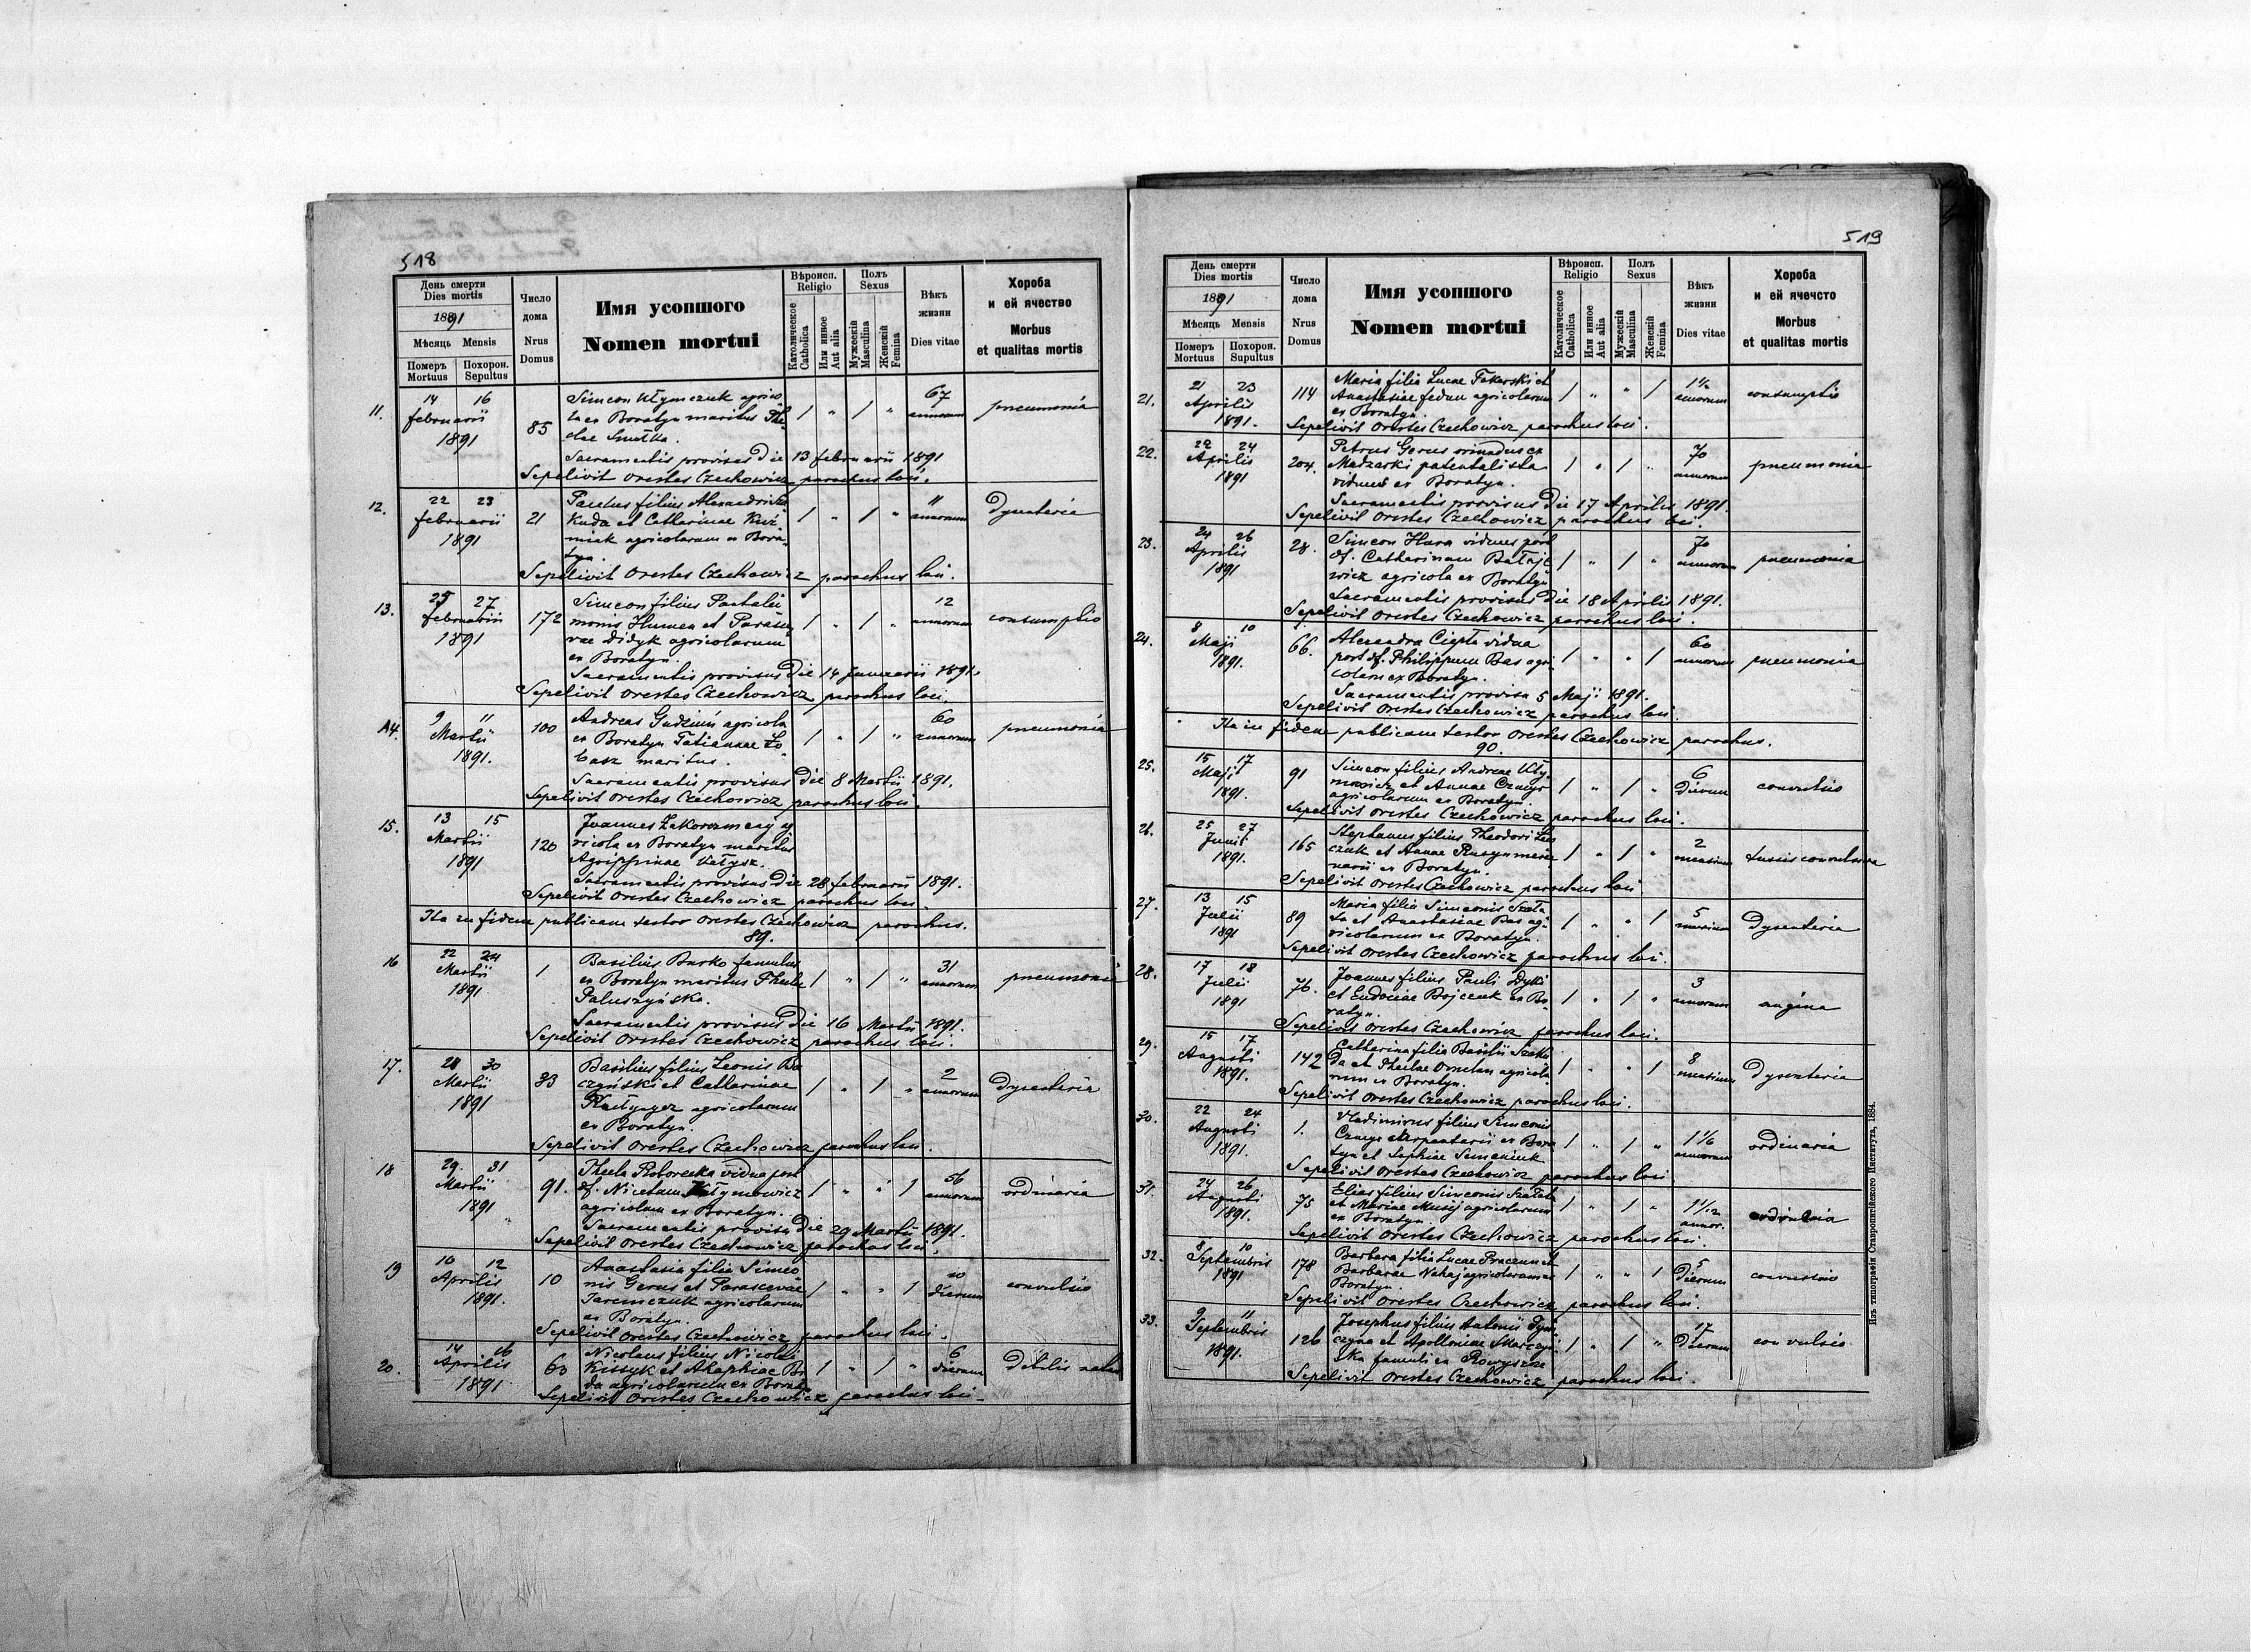 518
День смерти
Dies mortis
1891
Мѣсяць Mensis
Померъ
Mortuus
Похорон.
Sepultus
Число
дома
Nrus
Domus
Имя усопшого
Nomen mortui
Вѣроисп.
Religio
Католическое
Catholica
Или инное
Aut alia
Полъ
Sexus
Мужескій
Masculina
Женскій
Femina
Вѣкъ
жизни
Dies vitae
Хороба
и ей ячество
Morbus
et qualitas mortis
11. 14 16 Simeon agrico
februarii 85 la ex Boratyn maritus The / " / " 67 annorum pneumonia
1891 clae Smutka.
Sacramentis provisus die 13 februarii 1891
Sepelivit Orestes Czechowicz parochus loci.
12. 22 23 filius Alexandri
februarii 21 Kuda et Catharinae Kuź- / " / " 11 annorum Dysenteria
1891 miak agricolarum ex Bora-
tyn.
Sepelivit Orestes Czechowicz parochus loci.
13. 25 27 Simeon filius Pantalei
februarii 172 monis Humen et Parasce / " / " 12 annorum consumptio
1891 vae Didyk agricolarum
ex Boratyn.
Sacramentis provisus die 14 Januarii 1891.
Sepelivit Orestes Czechowicz parochus loci.
14. 9 11 100 Andreas agricola
Martii ex Boratyn Tatiannae Ło- / " / " 60 annorum pneumonia
1891. basz maritus.
Sacramentis provisus die 8 Martii 1891.
Sepelivit Orestes Czechowicz parochus loci.
15. 13 15 Joannes ag
Martii 120 ricola ex Boratyn maritus
1891 Agrippinae
Sacramentis provisus die 28 februarii 1891.
Sepelivit Orestes Czechowicz parochus loci.
Ita in fidem publicam testor Orestes Czechowicz parochus.
89.
16 22 24 Basilius Burko famulus
Martii 1 ex Boratyn maritus Theclae / " / " 31 annorum pneumonia
1891 Paluszyńska.
Sacramentis provisus die 16 Martii 1891.
Sepelivit Orestes Czechowicz parochus loci.
17. 28 30 Basilius filius Leonis Ba
Martii 33 czyński et Catharinae / " / " 2 annorum Dysenteria
1891 agricolarum
ex Boratyn.
Sepelivit Orestes Czechowicz parochus loci.
18 29 31 Thecla vidua post
Martii 91. df. Nicetam / " " 1 56 annorum ordinaria
1891 agricolam ex Boratyn.
Sacramentis provisa die 29 Martii 1891.
Sepelivit Orestes Czechowicz parochus loci.
19 10 12 Anastasia filia Simeo
Aprilis 10 nis Gerus et Parascevae / " " 1 10 dierum convulsio
1891. Jaremczuk agricolarum
ex Boratyn.
Sepelivit Orestes Czechowicz parochus loci.
20. 14 16 Nicolaus filius Nicolai
Aprilis 63 et Akaphiae Bo / " / " 6 dierum Debilis natus
1891 agricolarum ex Boratyn
Sepelivit Orestes Czechowicz parochus loci.
519
День смерти
Dies mortis
1891
Мѣсяць Mensis
Померъ
Mortuus
Похорон.
Supultus
Число
дома
Nrus
Domus
Имя усопшого
Nomen mortui
Вѣроисп.
Religio
Католическое
Catholica
Или инное
Aut alia
Полъ
Sexus
Мужескій
Masculina
Женскій
Femina
Вѣкъ
жизни
Dies vitae
Хороба
и ей ячечсто
Morbus
et qualitas mortis
21. 21 23 114 Maria filia Lucae et
Aprilis Anastasiae fedun agricolarum / " " / annorum consumptio
1891. ex Boratyn.
Sepelivit Orestes Czechowicz parochus loci.
22. 22 24 Petrus Gerus oriundus ex
Aprilis 204. Madzarki patentalista / " / " 70 annorum pneumonia
1891 viduus ex Boratyn.
Sacramentis provisus die 17 Aprilis 1891.
Sepelivit Orestes Czechowicz parochus loci.
23. 24 26 28. Simeon Hura viduus post
Aprilis df. Catharinam Bataje / " / " 70 annorum pneumonia
1891 wicz agricola ex Boratyn
Sacramentis provisus die 18 Aprilis 1891.
Sepelivit Orestes Czechowicz parochus loci.
24. 8 10 Alexandra Ciepła vidua
Maji 66. post df. Philippum Bas agri / " " / 60 annorum pneumonia
1891. colam ex Boratyn.
Sacramentis provisa 5 Maji 1891.
Sepelivit Orestes Czechowicz parochus loci.
Ita in fidem publicam testor Orestes Czechowicz parochus.
90.
25. 15 17 91 Simeon filius Andreae Kły
Maji mowicz et Annae / " / " 6 Dierum convulsio
1891. agricolarum ex Boratyn.
Sepelivit Orestes Czechowicz parochus loci.
26. 25 27 Stephanus filius Theodori
Junii 165 czuk et Annae Rusyn merce / " / " 2 mensium tussis convulsiva
1891. narii ex Boratyn.
Sepelivit Orestes Czechowicz parochus loci
27. 13 15 Maria filia Simeonis
Julii 89 et Anastasiae Bas ag- / " " / 5 mensium Dysenteria
1891 ricolarum ex Boratyn.
Sepelivit Orestes Czechowicz parochus loci.
28. 17 18 76. Joannes filius Pauli Dyki
Julii et Eudociae Bojczuk ex Bo / " / " 3 annorum angina
1891 ratyn.
Sepelivit Orestes Czechowicz parochus loci.
29. 15 17 Catharina filia Basilii
Augusti 142 et Theclae agricola / " " / 8 mensium Dysenteria
1891. rum ex Boratyn.
Sepelivit Orestes Czechowicz parochus loci.
30. 22 24 Vladimirus filius Simeonis
Augusti 1. carpentarii ex Bora / " / " annorum ordinaria
1891. tyn et Sophiae Semeniuk
Sepelivit Orestes Czechowicz parochus loci
31. 24 26 75 Elias filius Simeonis
Augusti et Mariae agricolarum / " / " annor. ordinaria
1891. ex Boratyn.
Sepelivit Orestes Czechowicz parochus loci.
32. 8 10 178 Barbara filia Lucae et
Septembris Barbarae Nahaj agricolarum ex / " " / 5 Dierum convulsio
1891 Boratyn.
Sepelivit Orestes Czechowicz parochus loci.
33. 9 11 Josephus filius Antonii
Septembris 126 et Apolloniae / " / " 17 Dierum convulsio
1891. famuli ex
Sepelivit Orestes Czechowicz parochus loci.
Изъ типографіи Ставропигійского Института, 1884.